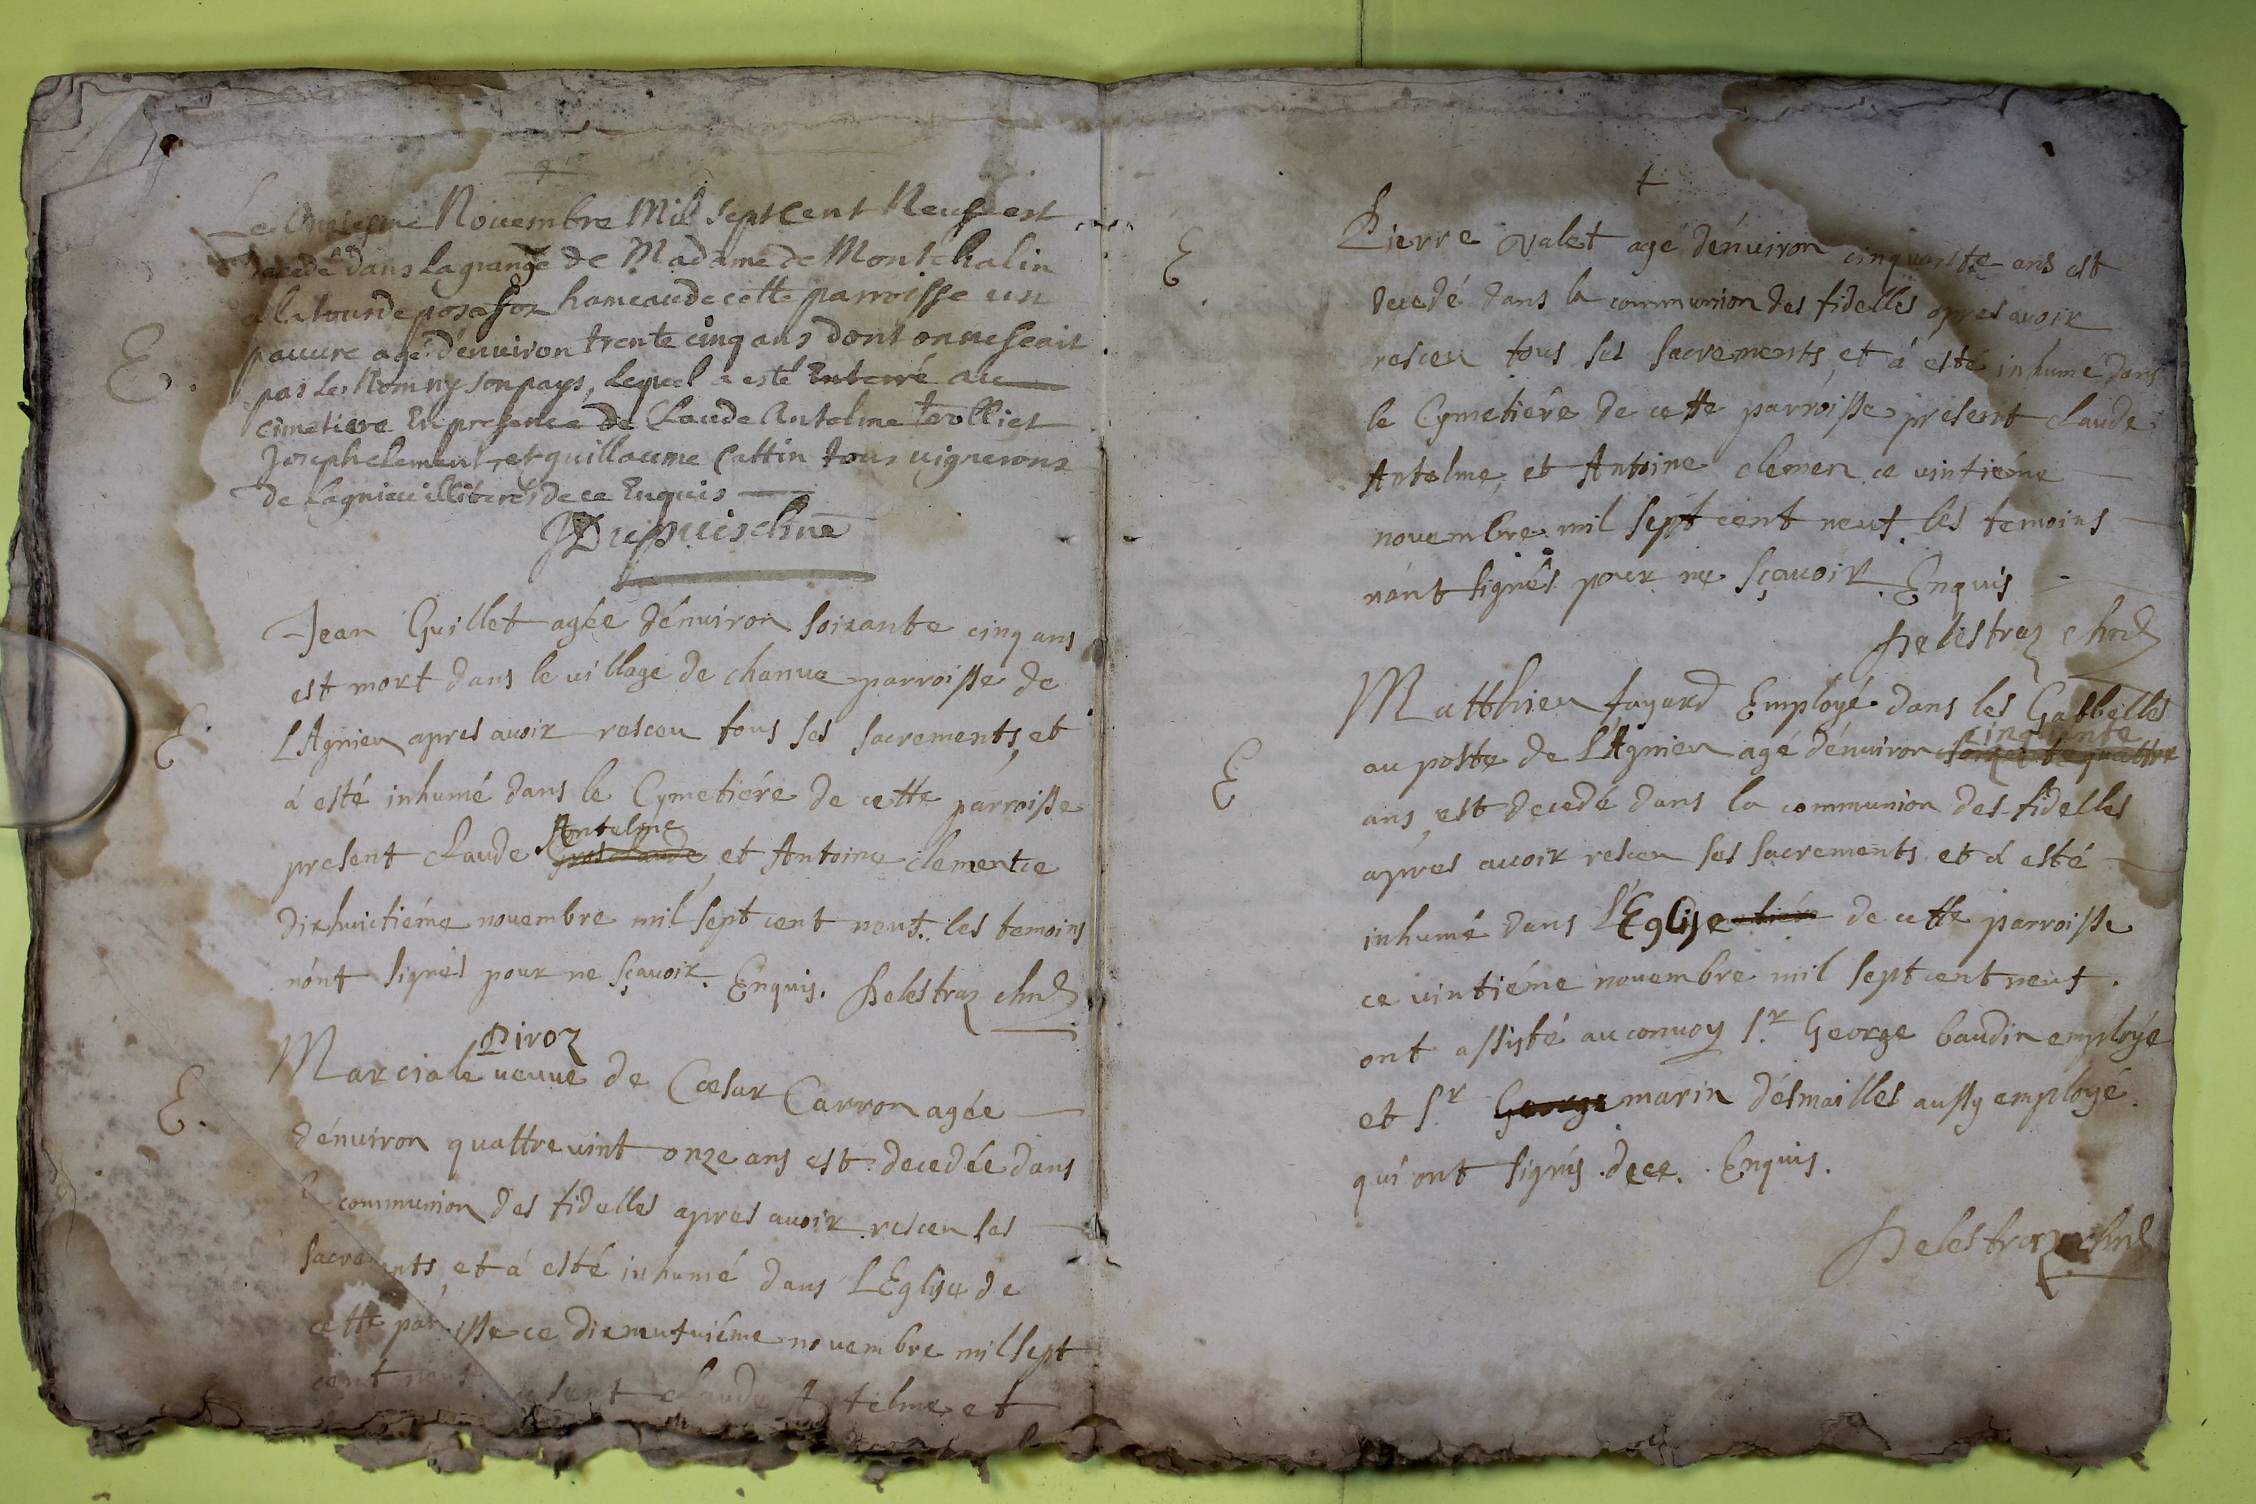 +
Le Onziesme Novembre Mil Sept Cent Neuf est
decedé dans la grange de Madame de Montchalin
a la tour de posafon hameau de cette parroisse un
pauure agé d'enuiron trente cinq ans dont on ne scait
pas les Nom ny son pays, lequel a esté Enterré au
cimetiere En presence de Claude Antelme trolliet
Joseph clement, et guillaume Cattin tous uignerons
de Lagnieu illiterés de ce Enquis
JDupuis chne
E.
Jean Guillet agée d'énuiron soixante cinq ans
est mort dans le uillage de chanua parroisse de
L'Agnieu apres auoir resceu tous ses sacrements, et
á esté inhumé dans le Cymetiére de cette parroisse
Antelme
present Claude et Antoine clement ce
dixhuictiéme nouembre mil sept cent neuf. les temoins
n'ont signés pour ne sçauoir. Enquis. Delestraz chne
E.
Piroz
Marciale ueuue de Cæsar Carron agée
d'énuiron quattre uint onze ans est decedée dans
la communion des fidelles apres auoir resceu ses
sacrements, et á esté inhumé dans L'Eglise de
cette parroisse ce dixneufuiéme nouembre mil sept
cent neuf. present Claude Antelme et
E.
+
Pierre Valet agé d'énuiron cinquante ans est
decedé dans la communion des fidelles apres auoir
resceu tous ses sacrements, et á esté inhume dans
le Cymetiére de cette parroisse present Claude
Antelme, et Antoine clemen ce vintiéme
nouembre mil sept cent neuf. les temoins
n'ont signés pour ne sçauoir. Enquis
Delestraz chne
E.
Matthieu fayard Employé dans les Gabbelles
cinquante
au poste de L'Agnieu agé d'énuiron soixante quattre
ans, est decedé dans la communion des fidelles
apres auoir resceu ses sacrements et á esté
inhumé dans l'Eglise de cette parroisse
ce vintiéme nouembre mil sept cent neuf.
ont assisté au conuoy Sr. George baudin employé
et Sr. George marin désmailles aussy employé.
qui ont signés. de ce. Enquis.
Delestraz chne
E